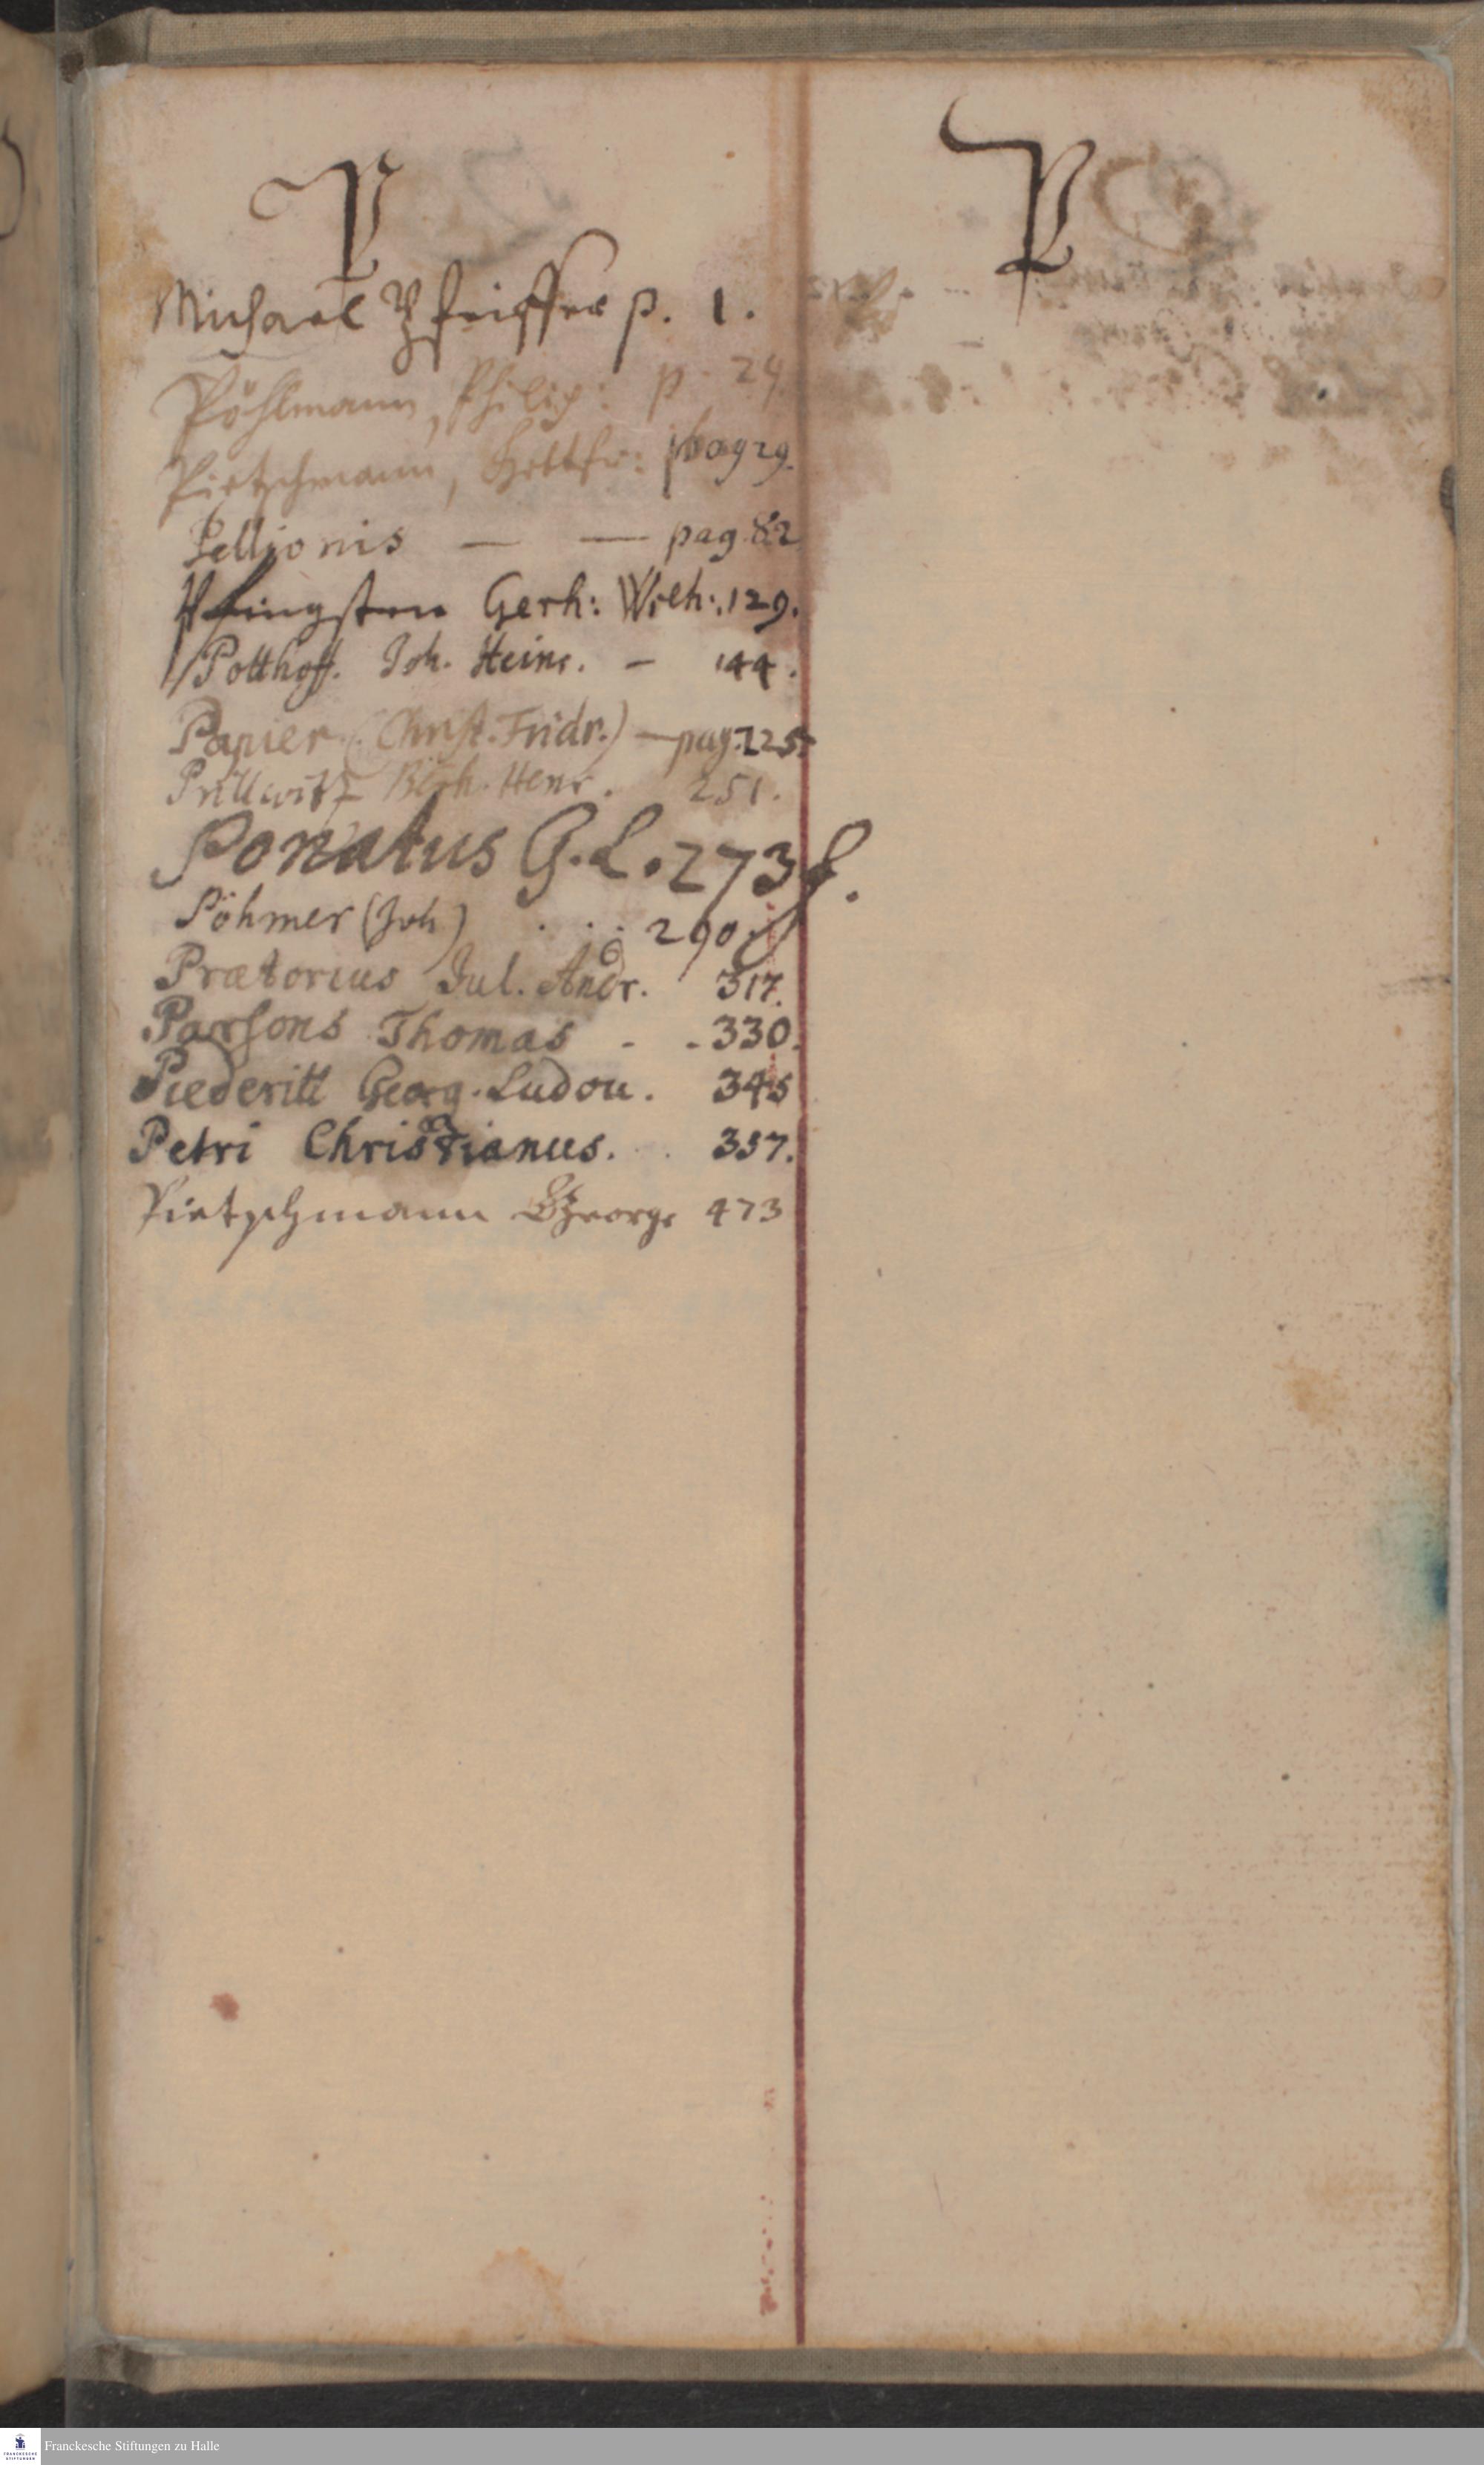 P
Michael Pfeiffer p. 1.
Pöhlmann, Philip: p. 24.
Pietschmann, Gottfr: pag 29.
Pellionis — — pag. 82
Pfingsten Gerh: Wilh: 129.
Potthoff. Joh. Heinr. – 144.
Papier (Christ. Fridr.) — pag. 225.
Prillwitz Henr. 251.
Ponatus G. L. 273 f.
Pöhmer (Joh) . . . 290.
Prætorius Jul. Andr. 317.
Parsons Thomas - - 330.
Piederitt Georg. Ludou. 345
Petri Christianus. . 357.
Pietzschmann George 473
P
Franckesche Stiftungen zu Halle